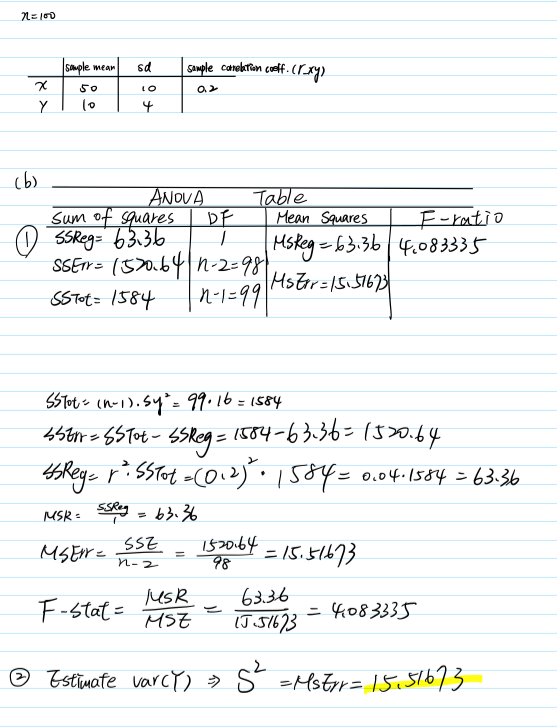 n=100
sample mean sd sample correlation coeff. (r_xy)
x 50 10 0.2
Y 10 4
(b)
ANOVA Table
Sum of squares DF Mean Squares F-ratio
① SSReg= 63.36 1 MsReg=63.36 4.083335
SSErr= 1520.64 n-2=98 MsErr=15.51673
SSTot= 1584 n-1=99
SSTot= (n-1)·Sy² = 99·16 = 1584
SSErr= SSTot - SSReg= 1584-63.36= 1520.64
SSReg= r²·SSTot =(0.2)²· 1584= 0.04·1584 = 63.36
MSR= SSReg/1 = 63.36
MSErr= SSE/n-2 = 1520.64/98 = 15.51673
F-stat= MSR/MSE = 63.36/15.51673 = 4.083335
② Estimate var(Y) ⇒ S² =MsErr= 15.51673